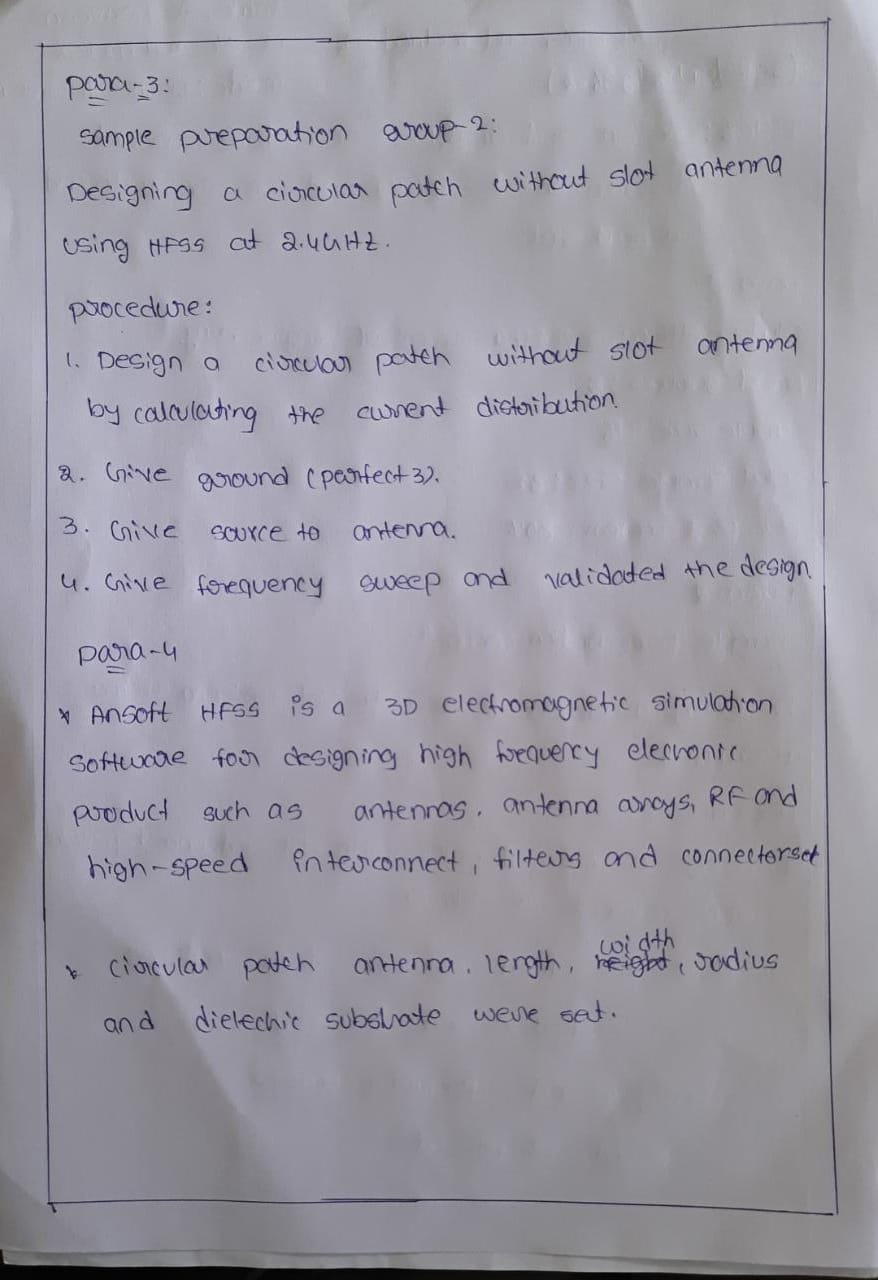 para-3:
sample preparation group-2:
Designing a circular patch without slot antenna
using HFSS at 2.4GHz.
procedure:
1. Design a circular patch without slot antenna
by calculating the current distribution.
2. Give ground (perfect 3).
3. Give source to antenna.
4. Give frequency sweep and validated the design.
para-4
* Ansoft HFSS is a 3D electromagnetic simulation
software for designing high frequency elecronic
product such as antennas, antenna arrays, RF and
high-speed interconnect, filters and connectorset
width
* circular patch antenna, length, height, radius
and dielechic substrate were set.